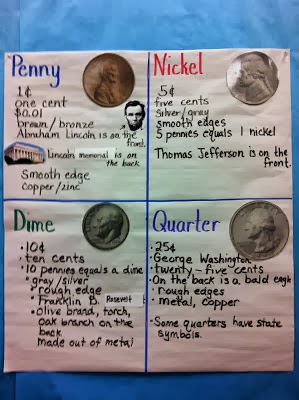 Penny
1¢
one cent
$0.01
brown/bronze
Abraham Lincoln is on the
front.
Lincoln memorial is on
the back
Smooth edge
copper/zinc
Nickel
5¢
five cents
silver/gray
smooth edges
5 pennies equals 1 nickel
Thomas Jefferson is on the
front.
Dime
• 10¢
• ten cents
• 10 pennies equals a dime
• gray/silver
• rough edge
• Franklin D. Roosevelt
• Olive brand, torch,
oak branch on the
back
made out of metal
Quarter
• 25¢
• George Washington
• twenty-five cents
• On the back is a bald eagle
• rough edges
• metal, copper
• Some quarters have state
symbols.